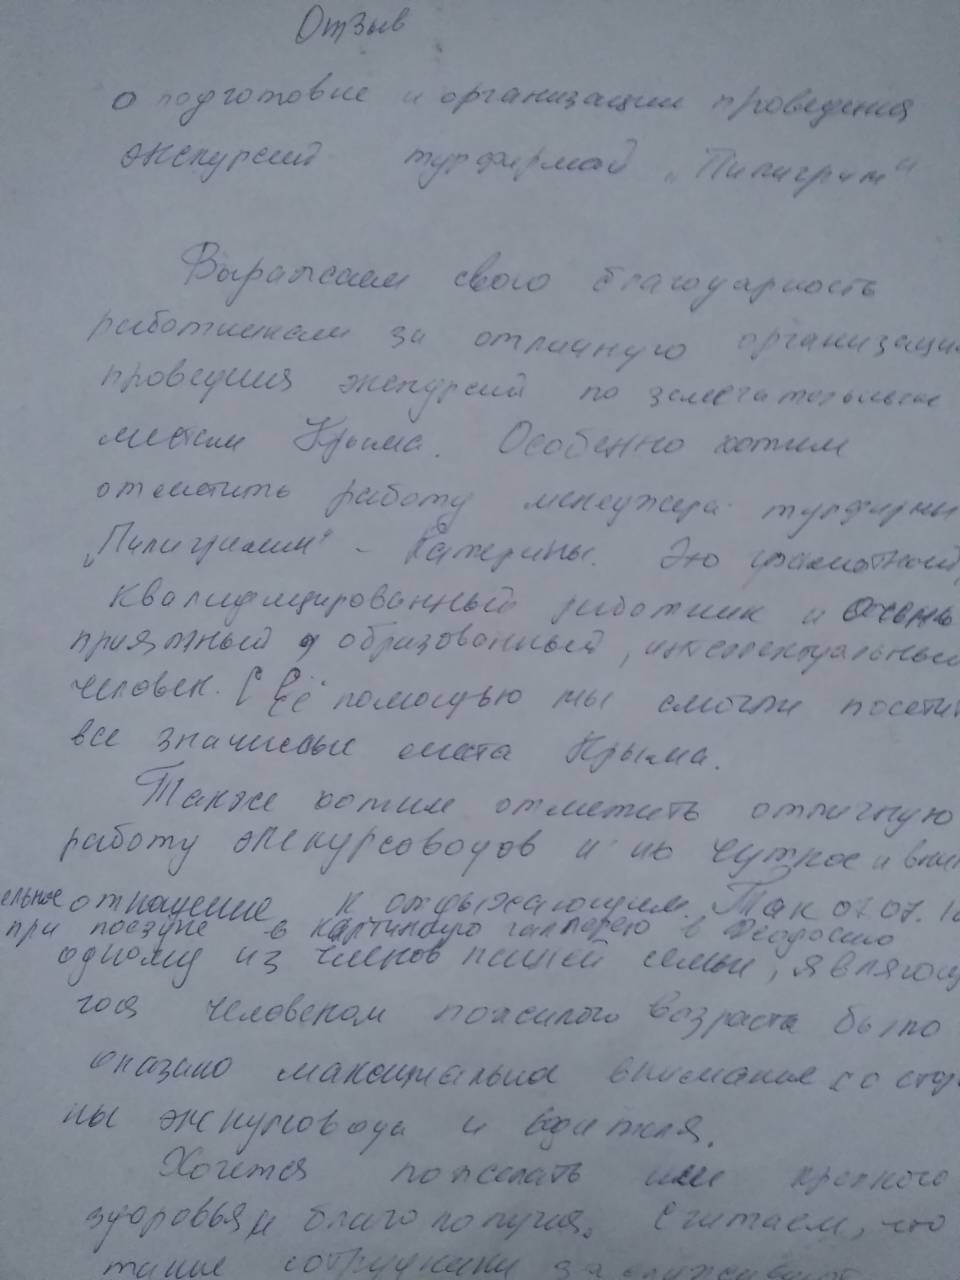 Отзыв
о подготовке и организации проведения
экскурсий турфирмой „Пилигрим"
Выражаем свою благодарность
работникам за отличную организаци
проведения экскурсий по замечательным
местам Крыма. Особенно хотим
отметить работу менеджера турфирмы
„Пилигрим" - Катерины. Это грамотный,
квалифицированный работник и очень
приятный, образованный, интеллектуальный
человек. С Её помощью мы смогли посетит
все значимые места Крыма.
Также хотим отметить отличную
работу экскурсоводов и их чуткое и вним
ельное отношение к отдыхающим. Так 07.07.
при поездке в картинную галлерею в Феодосию
одному из членов нашей семьи, являющ
гося человеком пожилого возраста было
оказано максимальна внимание со сторо
ны экскурсовода и водителя.
Хочется пожелать им крепкого
здоровья и благополучия. Считаем, что
такие сотрудники заслуживают